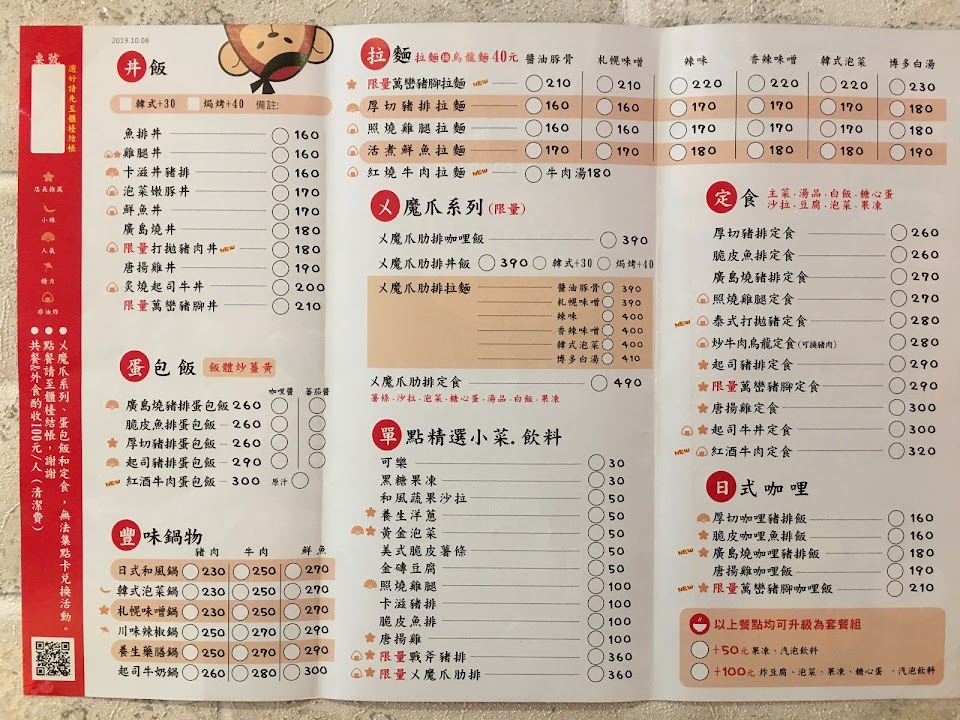 桌號
還好請先至櫃檯結帳
店長推薦
小辣
人氣
精力
非油炸
●乂魔爪系列、蛋包飯和定食，無法集點卡兌換活動。
●點餐請至櫃檯結帳，謝謝
●共餐&外食酌收100元/人(清潔費)
2019.10.08
丼飯
韓式+30 焗烤+40 備註:
魚排丼 160
雞腿丼 160
卡滋丼豬排 160
泡菜嫩豚丼 170
鮮魚丼 170
廣島燒丼 180
限量打拋豬肉丼 NEW 180
唐揚雞丼 190
炙燒起司牛丼 200
限量萬巒豬腳丼 210
蛋包飯 飯體炒薑黃
咖哩醬 蕃茄醬
廣島燒豬排蛋包飯 260
脆皮魚排蛋包飯 260
厚切豬排蛋包飯 260
起司豬排蛋包飯 290
NEW 紅酒牛肉蛋包飯 300 原汁
豐味鍋物
豬肉 牛肉 鮮魚
日式和風鍋 230 250 270
韓式泡菜鍋 230 250 270
札幌味噌鍋 230 250 270
川味辣椒鍋 250 270 290
養生藥膳鍋 250 270 290
起司牛奶鍋 260 280 300
拉麵 拉麵換烏龍麵40元 醬油豚骨 札幌味噌 辣味 香辣味噌 韓式泡菜 博多白湯
限量萬巒豬腳拉麵 NEW 210 210 220 220 220 230
厚切豬排拉麵 160 160 170 170 170 180
照燒雞腿拉麵 160 160 170 170 170 180
活煮鮮魚拉麵 170 170 180 180 180 190
紅燒牛肉拉麵 NEW 牛肉湯180
乂魔爪系列(限量)
乂魔爪肋排咖哩飯 390
乂魔爪肋排丼飯 390 韓式+30 焗烤+40
乂魔爪肋排拉麵 醬油豚骨 390
札幌味噌 390
辣味 400
香辣味噌 400
韓式泡菜 400
博多白湯 410
乂魔爪肋排定食 490
薯條.沙拉.泡菜.糖心蛋.湯品.白飯.果凍
單點精選小菜.飲料
可樂 30
黑糖果凍 30
和風蔬果沙拉 50
養生洋蔥 50
黃金泡菜 50
美式脆皮薯條 50
金磚豆腐 50
照燒雞腿 100
卡滋豬排 100
脆皮魚排 100
唐揚雞 100
限量戰斧豬排 360
限量乂魔爪肋排 360
定食 主菜.湯品.白飯.糖心蛋
沙拉.豆腐.泡菜.果凍
厚切豬排定食 260
脆皮魚排定食 260
廣島燒豬排定食 270
照燒雞腿定食 270
NEW 泰式打拋豬定食 280
炒牛肉烏龍定食(可換豬肉) 280
起司豬排定食 290
限量萬巒豬腳定食 290
唐揚雞定食 300
起司牛丼定食 300
NEW 紅酒牛肉定食 320
日式咖哩
厚切咖哩豬排飯 160
脆皮咖哩魚排飯 160
NEW 廣島燒咖哩豬排飯 180
唐揚雞咖哩飯 190
NEW 限量萬巒豬腳咖哩飯 210
以上餐點均可升級為套餐組
+50元 果凍、汽泡飲料
+100元 炸豆腐、泡菜、果凍、糖心蛋、汽泡飲料